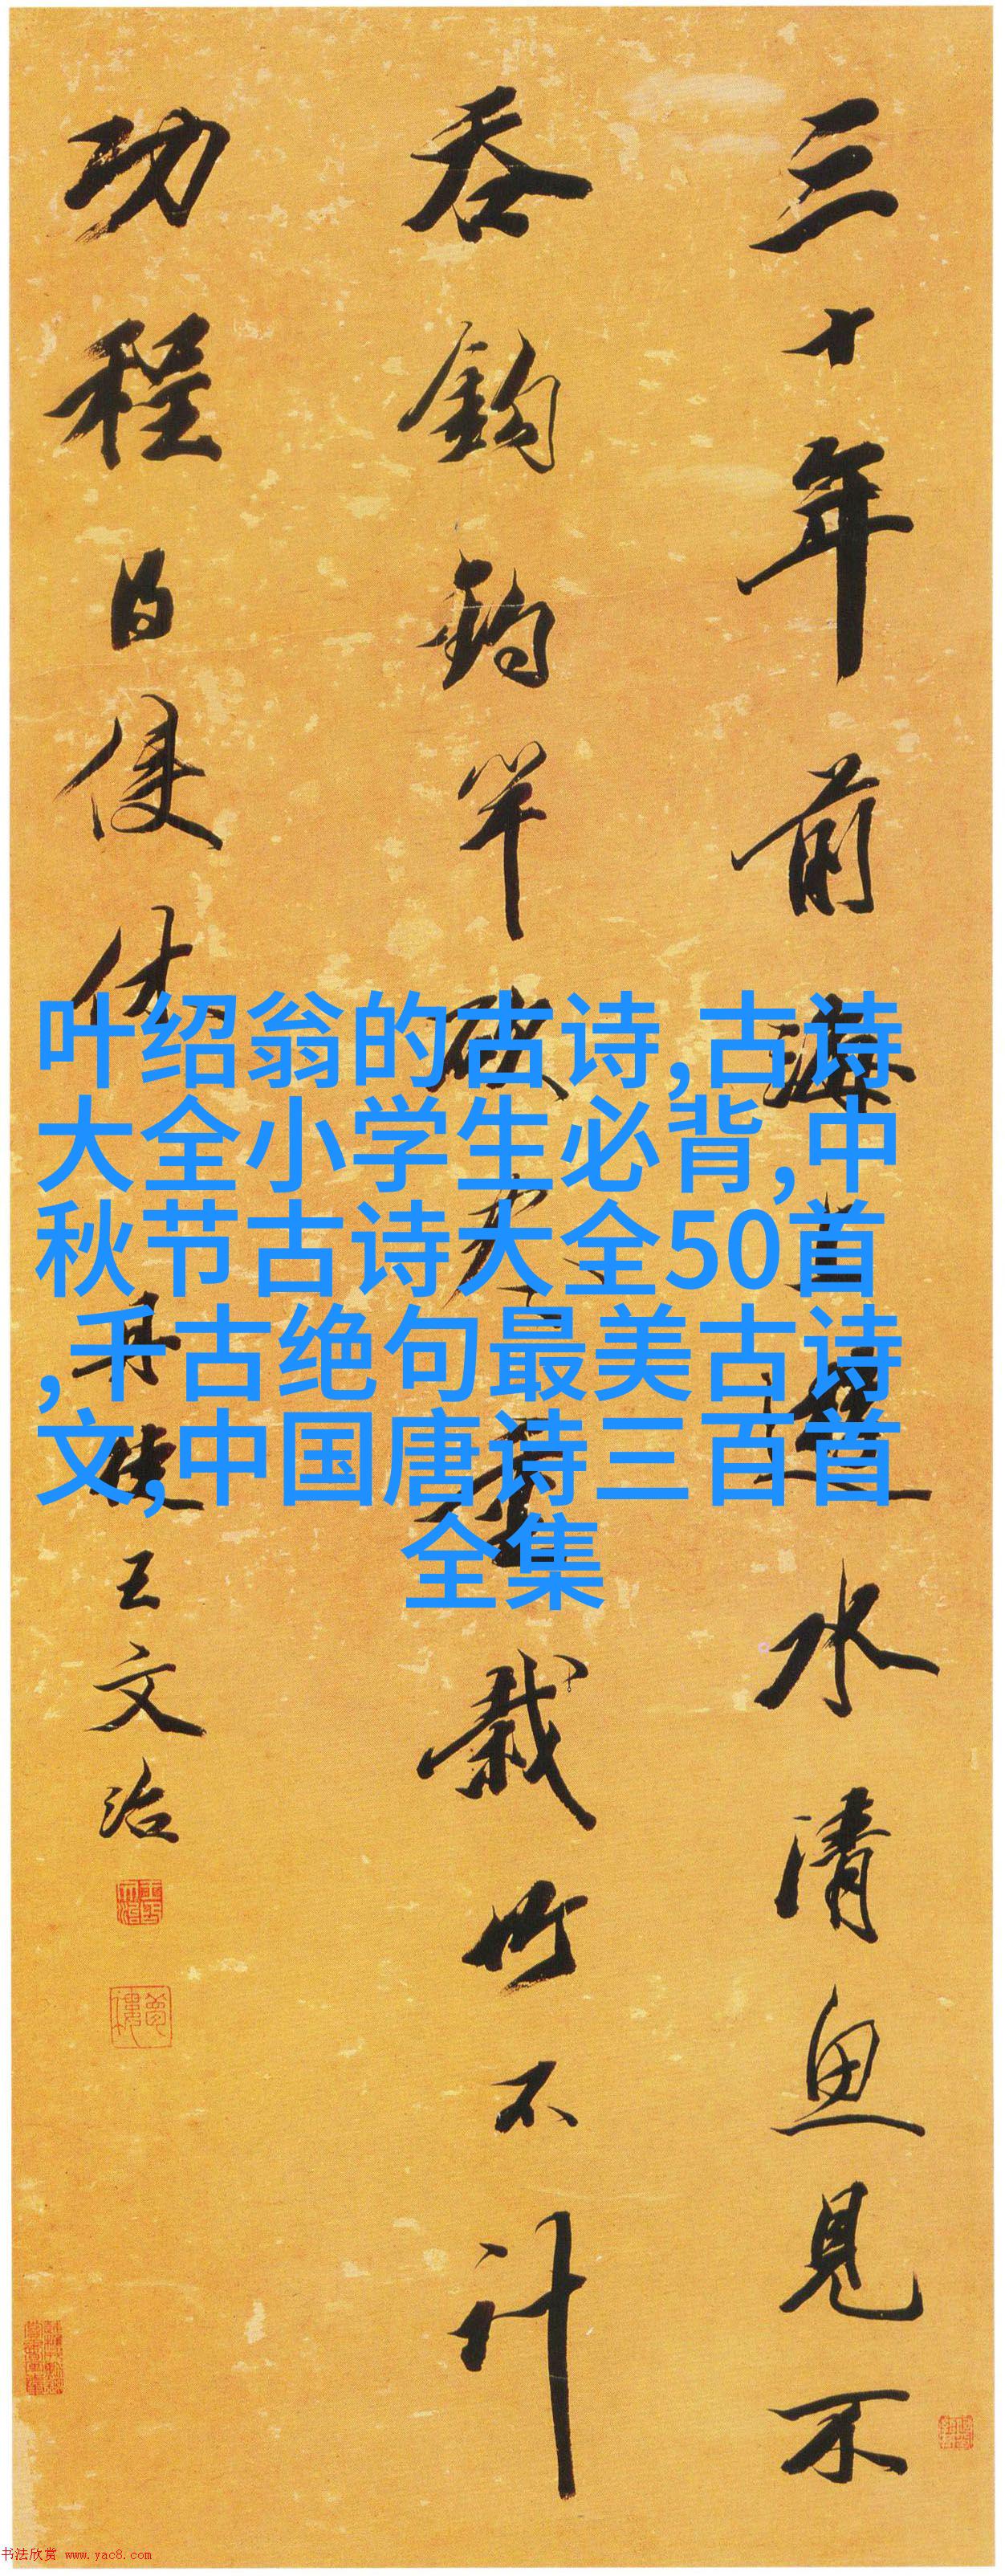 三十年前海上遊水清魚見不
吞鈎釣竿斫盡重栽竹不計
功程得便休
王文治
叶绍翁的古诗,古诗
大全小学生必背,中
秋节古诗大全50首
,千古绝句最美古诗
文,中国唐诗三百首
全集
书法欣赏 www.yac8.com